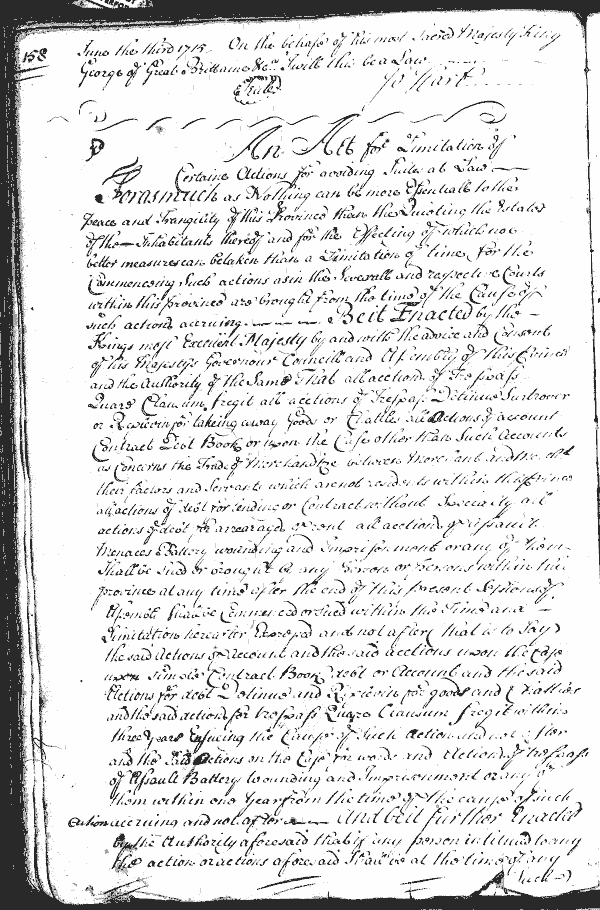 158
June the third 1715 On the behalfe of his most Sacred Majesty King
George of Great Brittaine &c I will this be a Law
Jo Hart
An Act for Limitation of
Certaine Actions for avoiding Suites at Law
Forasmuch as Nothing can be more Essentiall to the
peace and Tranquility of this Province than the Quieting the Estates
of the Inhabitants thereof and for the Effecting of which noe
better measures can be taken than a Limitation of time for the
Commencing Such actions as in the Severall and respective Courts
within this province are brought from the time of the Cause of
such actions accruing Be it Enacted by the
Kings most Excellent Majesty by and with the advice and Consent
of his Majestys Governour Councill and Assembly of this Province
and the Authority of the Same That all actions of Trespass
Quare Clausum fregit all actions of Trespass Detinue Surtrover
or Replevin for takeing away Goods or Chattles all Actions of account
Contract Debt Book or upon the Case other than Such Accounts
as Concerns the Trade of Merchandize between Merchant and
their factors and Servants which are not residents within this Province
all actions of debt for lending or Contract without Specialty all
actions of debt for arrearages of rent all actions of assault
Menaces Battery wounding and Imprisonment or any of them
Shall be Sued or brought by any Person or Persons within this
province at any time after the end of this present Sessions of
Assembly Shall be Commenced or Sued within the Time and
Limitation hereafter Expressed and not after that is to Say
the said Actions of Account and the said actions upon the Case
upon Simple Contract Book debt or Account and the said
Actions for debt Detinue and Replevin for goods and Chattles
and the said actions for trespass Quare Clausum fregit within
three years Ensueing the Cause of Such Action and not after
and the Said Actions on the Case for words and Actions of trespass
of Assault Battery wounding and Imprisonment or any of
them within one Year from the time of the cause of such
action accruing and not after And be it further Enacted
by the Authority aforesaid that if any person intituled to any
the action or actions aforesaid Shall be at the time of any
Such